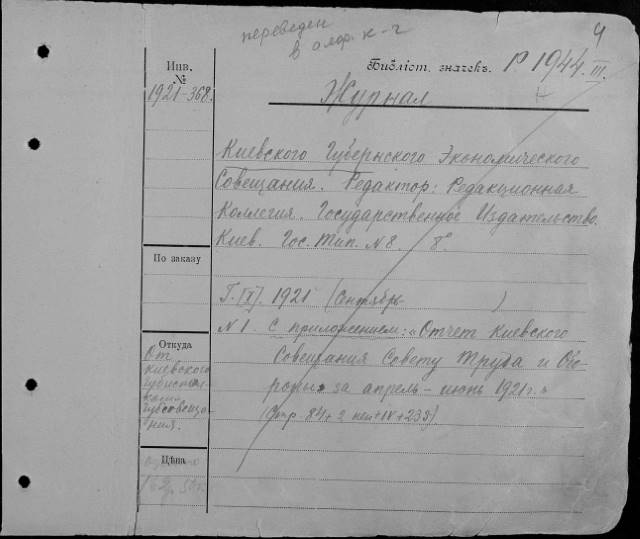 переведен
в алф. к-г
4
Инв.
№
1921-368.
Библіот. значекъ. Р 1944. III.
Журнал
Киевского Губернского Экономического
Совещания. Редактор: Редакционная
Коллегия. Государственное Издательство.
Киев. Гос. Тип. N8. 8°
По заказу
Г. [I]. 1921 (Сентябрь )
N 1. С приложением: "Отчет Киевского
Совещания Совету Труда и Обо-
роны за апрель - июнь 1921 г."
Откуда
От
Киевского
Губсовеща-
ния.
84 + 2 + IV + 232).
Цѣна